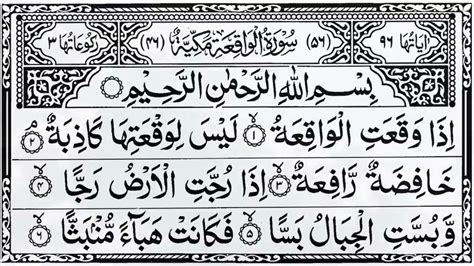 اٰيَاتُهَا ٩٦ (٥٦) سُوْرَةُ الْوَاقِعَةِ مَكِّيَّةٌ (٤٦) رُكُوْعَاتُهَا ٣
بِسْمِ اللهِ الرَّحْمٰنِ الرَّحِيْمِ
اِذَا وَقَعَتِ الْوَاقِعَةُ ۝١ لَيْسَ لِوَقْعَتِهَا كَاذِبَةٌ ۝٢
خَافِضَةٌ رَّافِعَةٌ ۝٣ اِذَا رُجَّتِ الْاَرْضُ رَجًّا ۝٤
وَّبُسَّتِ الْجِبَالُ بَسًّا ۝٥ فَكَانَتْ هَبَآءً مُّنْۢبَثًّا ۝٦